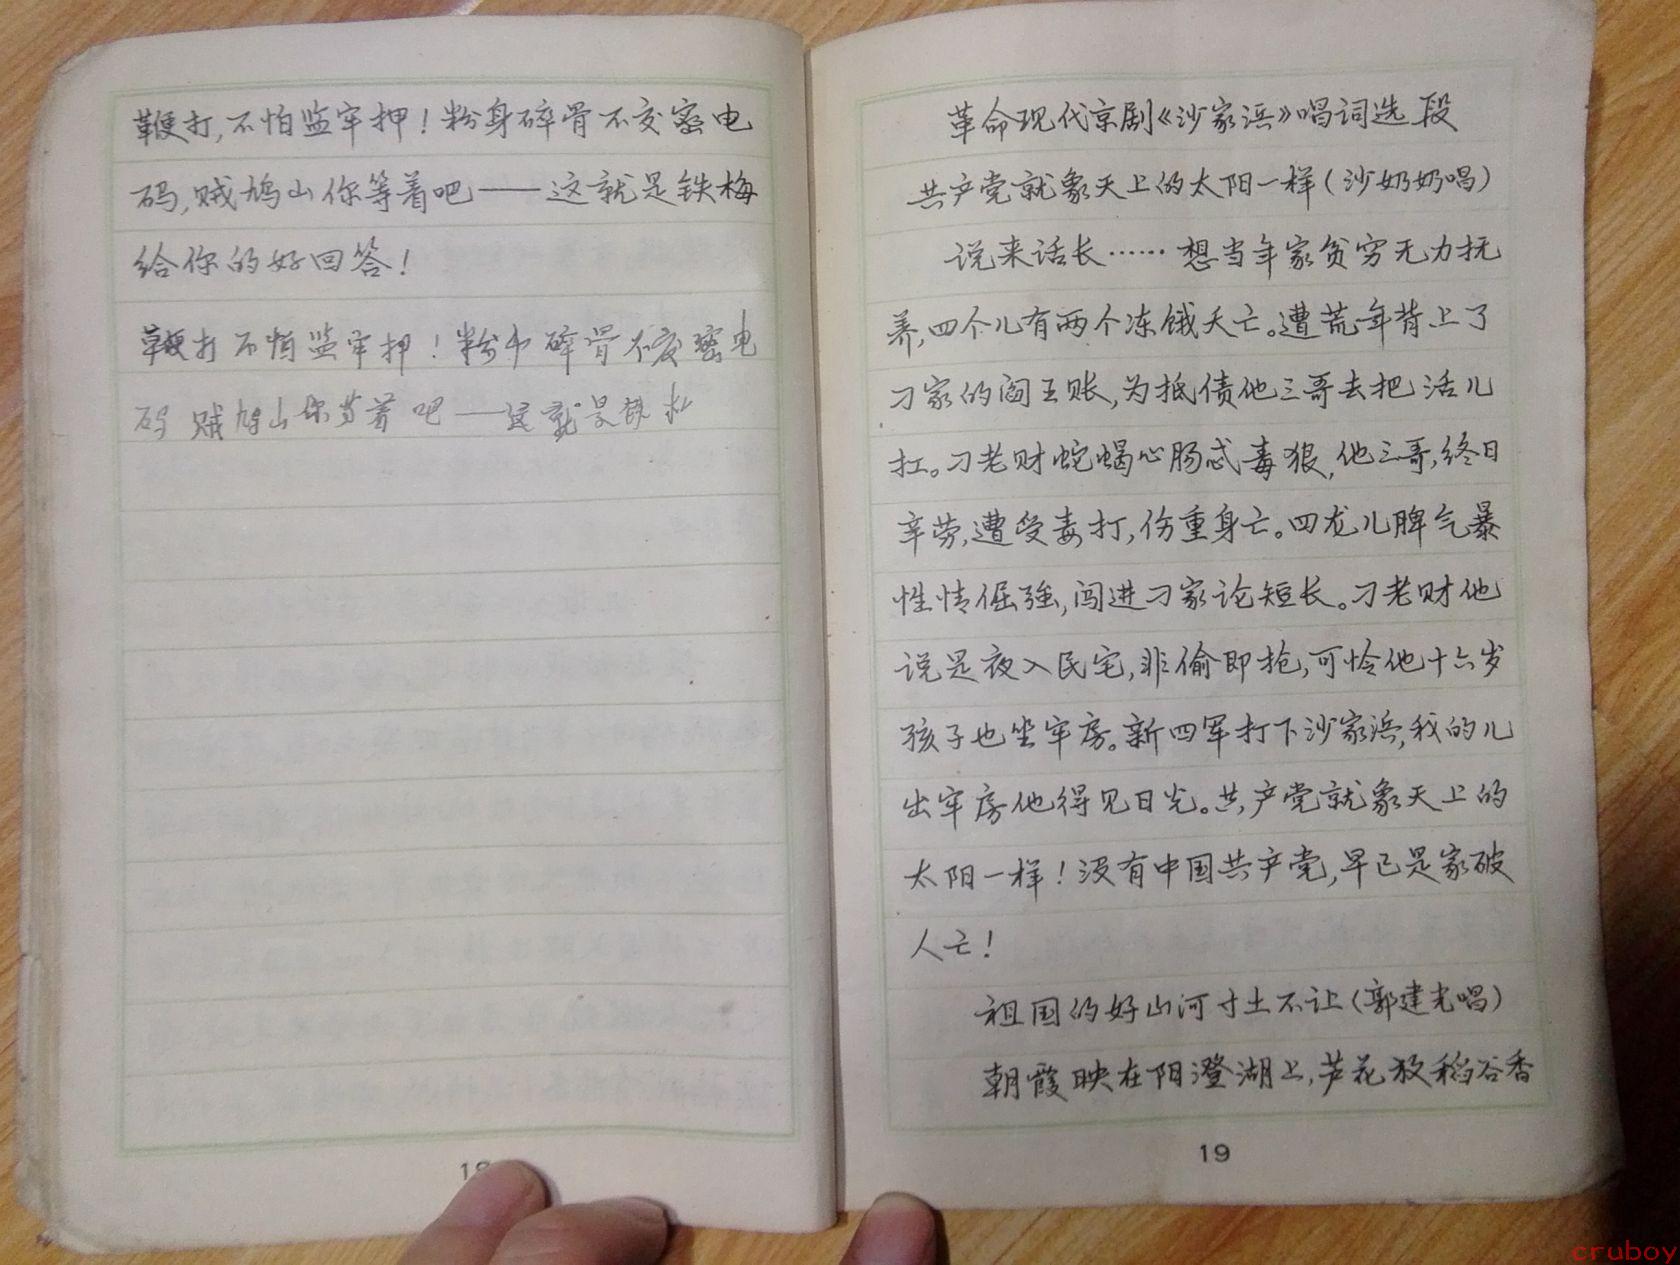 鞭打,不怕监牢押!粉身碎骨不交密电
码,贼鸠山你等着吧——这就是铁梅
给你的好回答!
鞭打不怕监牢押!粉 碎骨不交密电
码 贼鸠山你等着吧——这就是铁
18
革命现代京剧《沙家浜》唱词选段
共产党就象天上的太阳一样(沙奶奶唱)
说来话长……想当年家贫穷无力抚
养,四个儿有两个冻饿夭亡。遭荒年背上了
刁家的阎王账,为抵债他三哥去把活儿
扛。刁老财蛇蝎心肠忒毒狠,他三哥,终日
辛劳,遭受毒打,伤重身亡。四龙儿脾气暴
性情倔强,闯进刁家论短长。刁老财他
说是夜入民宅,非偷即抢,可怜他十六岁
孩子也坐牢房。新四军打下沙家浜,我的儿
出牢房他得见日光。共产党就象天上的
太阳一样!没有中国共产党,早已是家破
人亡!
祖国的好山河寸土不让(郭建光唱)
朝霞映在阳澄湖上,芦花放稻谷香
19
cruboy